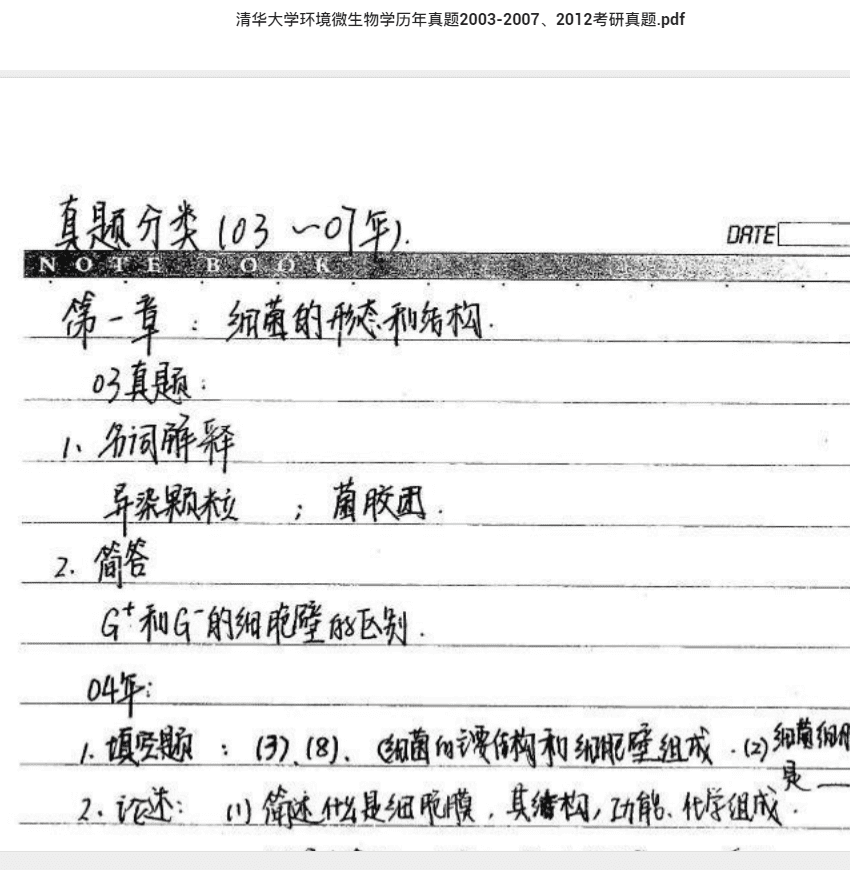 清华大学环境微生物学历年真题2003-2007、2012考研真题.pdf
真题分类(03～07年).
DATE
NOTE BOOK
第一章：细菌的形态和结构.
03真题：
1、名词解释
异染颗粒 ；菌胶团.
2. 简答
G⁺和G⁻的细胞壁的区别.
04年：
1. 填空题：(3).(8). (细菌的主要结构和细胞壁组成.(2)细菌细胞
是__
2. 论述：(1)简述什么是细胞膜，其结构，功能、化学组成.